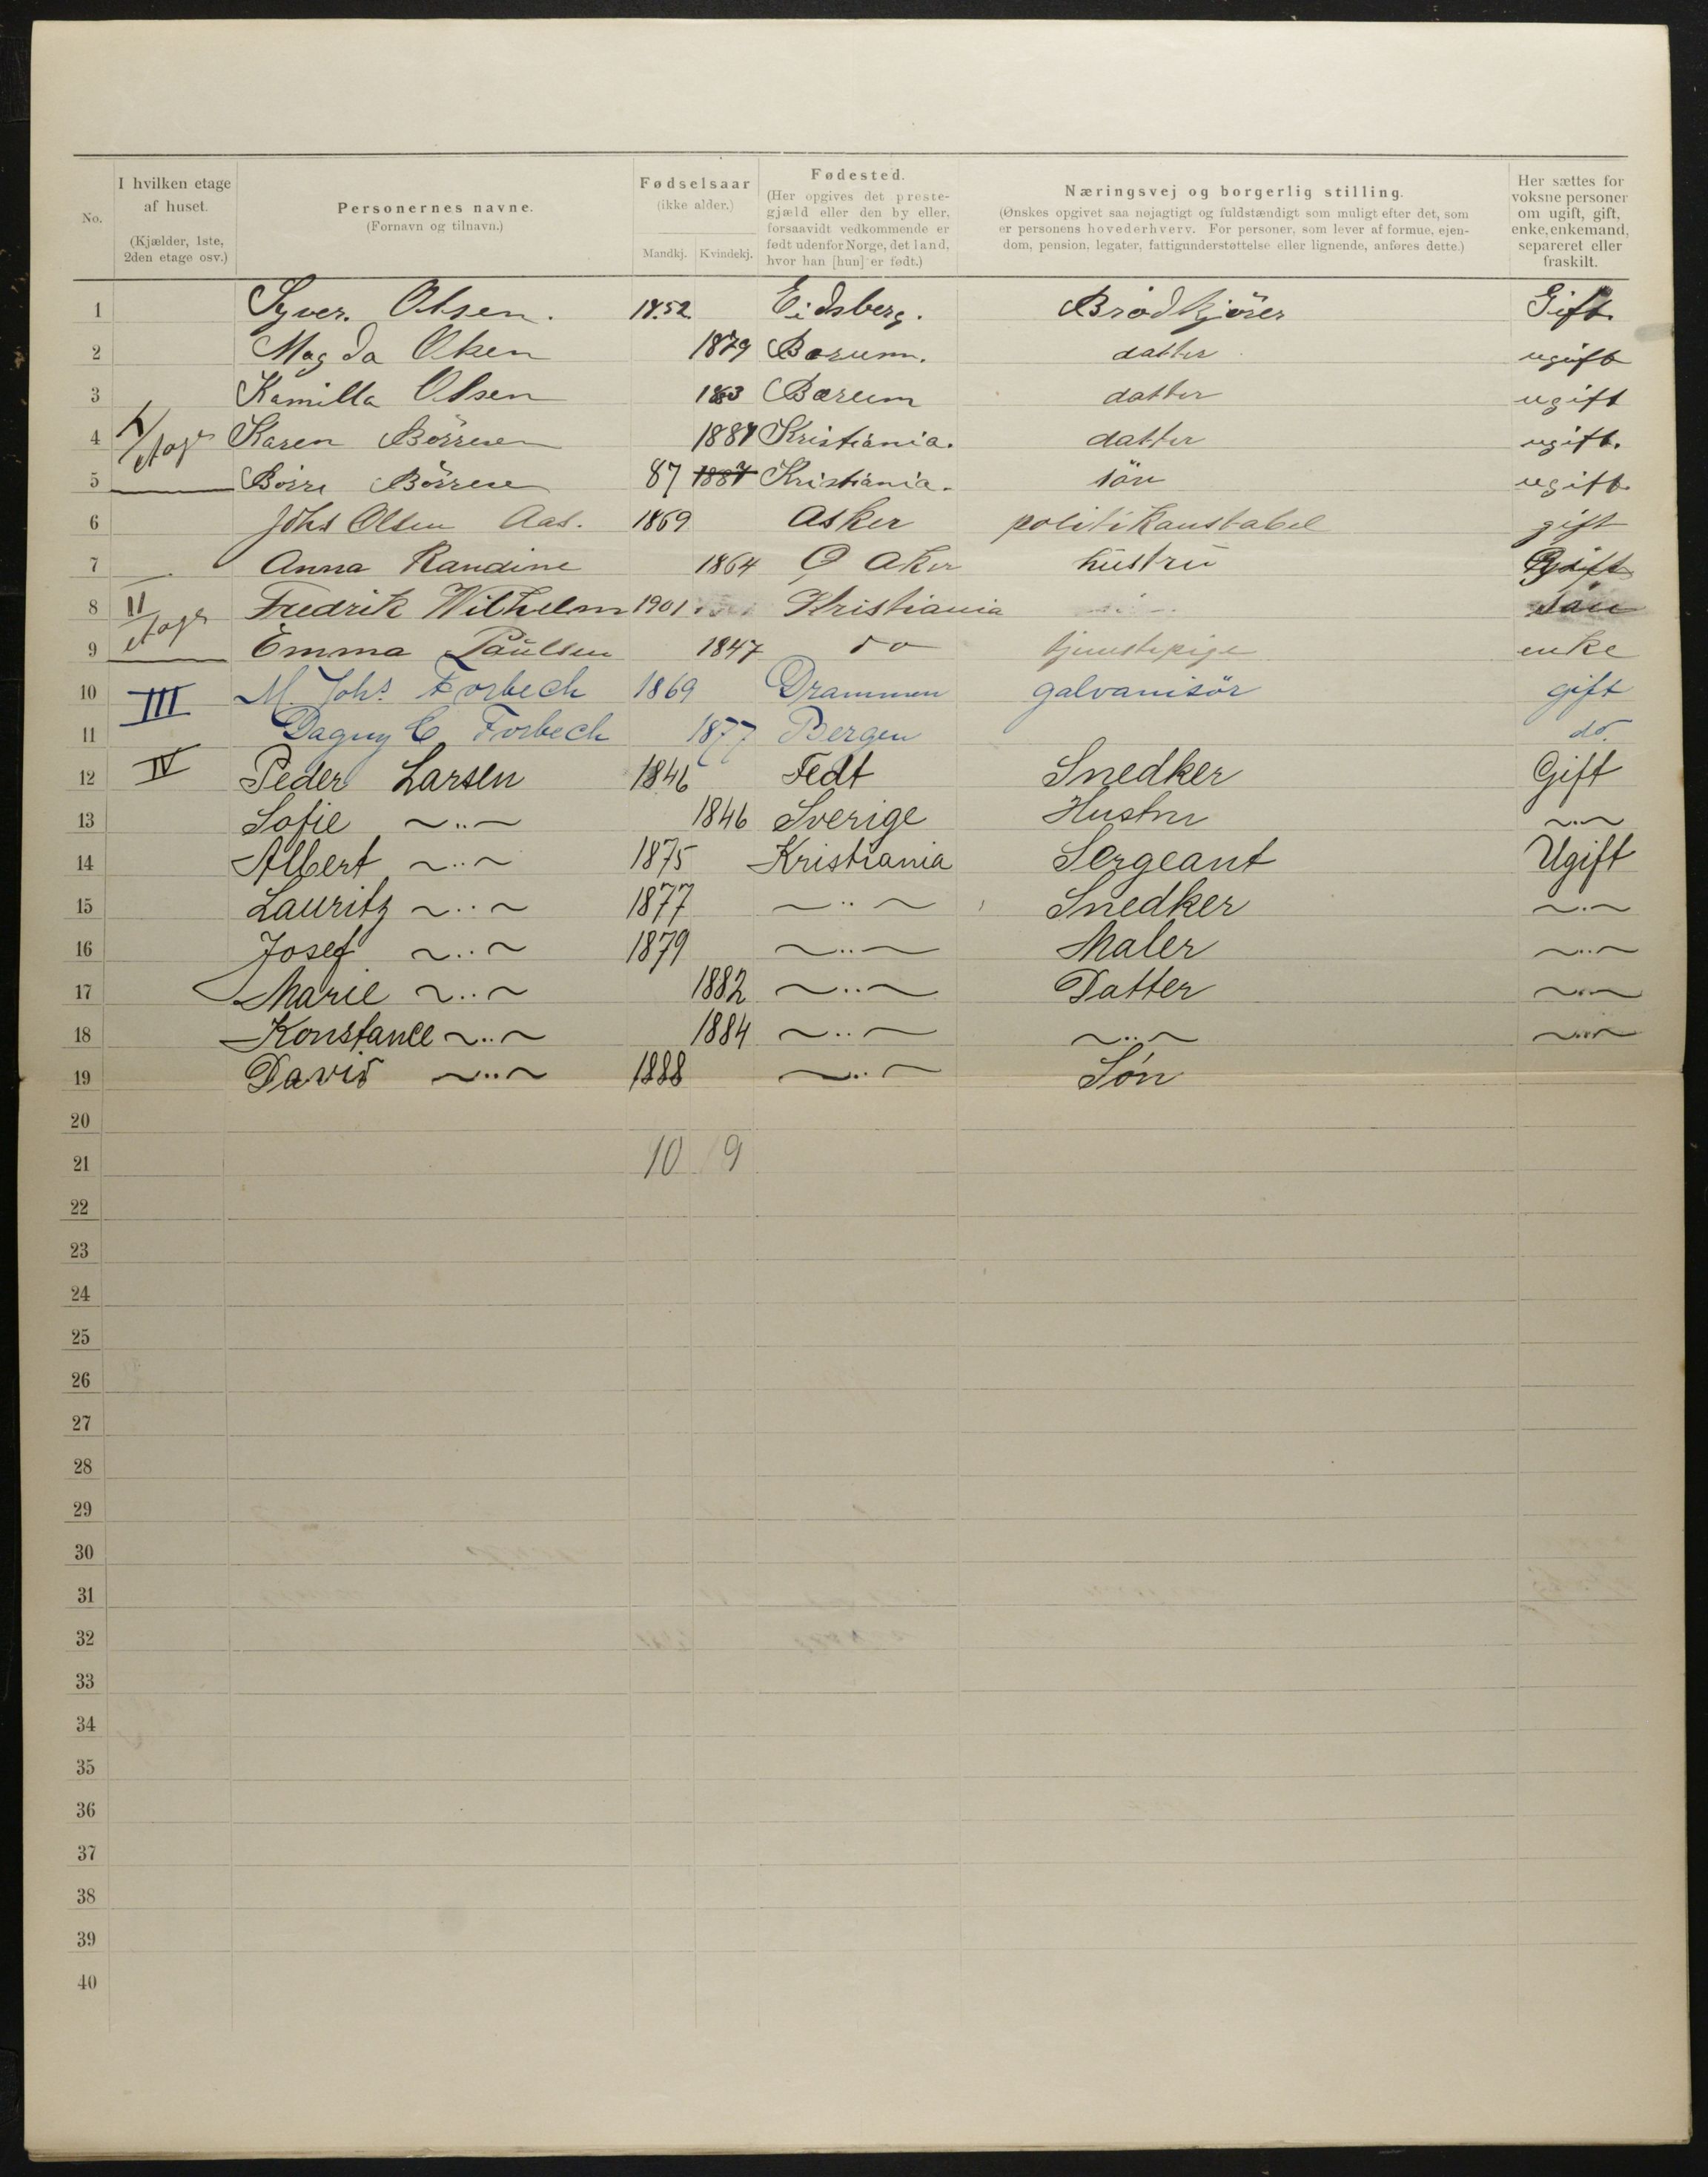 No.
I hvilken etage
af huset.
(Kjælder, 1ste,
2den etage osv.)
Personernes navne.
(Fornavn og tilnavn.)
Fødselsaar
(ikke alder.)
Mandkj. Kvindekj.
Fødested.
(Her opgives det preste-
gjæld eller den by eller,
forsaavidt vedkommende er
født udenfor Norge, det land,
hvor han [hun] er født.)
Næringsvej og borgerlig stilling.
(Ønskes opgivet saa nøjagtigt og fuldstændigt som muligt efter det, som
er personens hovederhverv. For personer, som lever af formue, ejen-
dom, pension, legater, fattigunderstøttelse eller lignende, anføres dette.)
Her sættes for
voksne personer
om ugift, gift,
enke, enkemand,
separeret eller
fraskilt.
1 Syver. Olsen. 1852 Eidsberg. Brödkjörer Gift
2 Magda Olsen 1879 Bærum. datter ugift
3 Kamilla Olsen 1883 Bærum datter ugift
4 I etage Karen Börresen 1887 Kristiania. datter ugift.
5 Börre Börresen 87 1887 Kristiania. sön ugift
6 Johs Olsen Aas. 1869 Asker politikonstabel gift
7 Anna Randine 1864 Ø Aker hustru Gift
8 II etage Fredrik Wilhelm 1901 Kristiania sön
9 Emma Paulsen 1847 do tjenestepige enke
10 III M. Johs. Forbech 1869 Drammen galvanisör gift
11 Dagny C Forbech 1877 Bergen do.
12 IV Peder Larsen 1846 Fedt Snedker Gift
13 Sofie ~..~ 1846 Sverige Hustru ~..~
14 Albert ~..~ 1875 Kristiania Sergeant Ugift
15 Lauritz ~..~ 1877 ~..~ Snedker ~..~
16 Josef ~..~ 1879 ~..~ Maler ~..~
17 Marie ~..~ 1882 ~..~ Datter ~..~
18 Konstance ~..~ 1884 ~..~ ~..~ ~..~
19 David ~..~ 1888 ~..~ Són
20
21 10 9
22
23
24
25
26
27
28
29
30
31
32
33
34
35
36
37
38
39
40